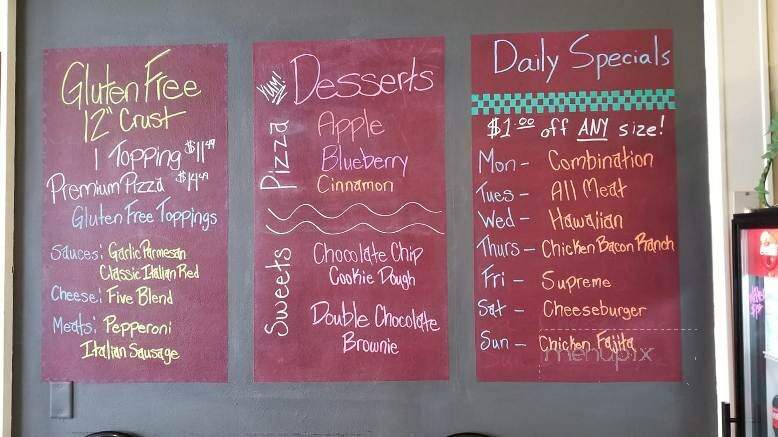 Gluten Free
12" Crust
1 Topping $11.49
Premium Pizza $14.49
Gluten Free Toppings
Sauces: Garlic Parmesan
Classic Italian Red
Cheese: Five Blend
Meats: Pepperoni
Italian Sausage
YUM! Desserts
Pizza
Apple
Blueberry
Cinnamon
Sweets
Chocolate Chip
Cookie Dough
Double Chocolate
Brownie
Daily Specials
$1.00 off ANY size!
Mon - Combination
Tues - All Meat
Wed - Hawaiian
Thurs - Chicken Bacon Ranch
Fri - Supreme
Sat - Cheeseburger
Sun - Chicken Fajita
menupix